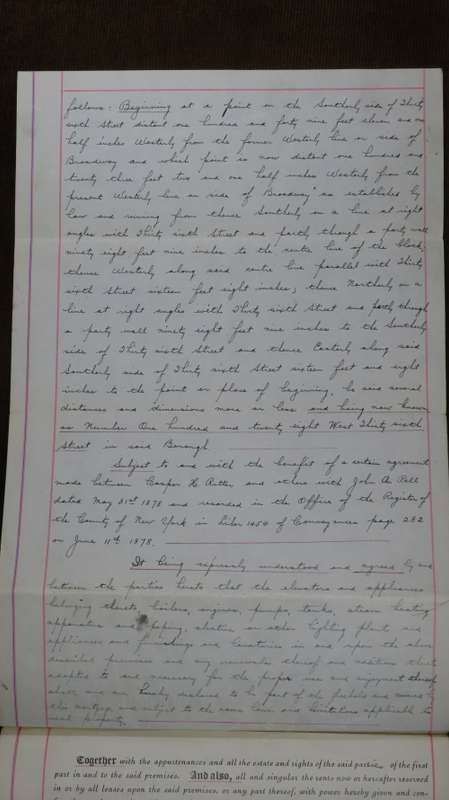 follows:- Beginning at a point on the Southerly side of Thirty
sixth Street distant one hundred and forty nine feet eleven and one
half inches Westerly from the former Westerly line or side of
Broadway and which point is now distant one hundred and
twenty three feet two and one half inches Westerly from the
present Westerly line or side of Broadway as established by
law and running from thence Southerly on a line at right
angles with Thirty sixth Street and partly through a party wall
ninety eight feet nine inches to the centre line of the block;
thence Westerly along said centre line parallel with Thirty
sixth Street sixteen feet eight inches; thence Northerly on a
line at right angles with Thirty sixth Street and partly through
a party wall ninety eight feet nine inches to the Southerly
side of Thirty sixth Street and thence Easterly along said
Southerly side of Thirty sixth Street sixteen feet and eight
inches to the point or place of beginning, be said several
distances and dimensions more or less and being now known
as Number One hundred and twenty eight West Thirty sixth
Street in said Borough
Subject to and with the benefit of a certain agreement
made between Casper H. and others with John A.
dated May 31st 1878 and recorded in the Office of the Register of
the County of New York in Liber 1454 of Conveyances page 282
on June 11th 1878.
It being expressly understood and agreed by and
between the parties hereto that the elevators and appliances
belonging thereto, boilers, engines, pumps, tanks, steam heating
apparatus and piping, electric or other lighting plants and
appliances and furnishings and in and upon the above
described premises and any renewals thereof and additions thereto
adapted to and necessary for the proper use and enjoyment thereof
shall and are hereby declared to be part of the freehold and covered by
this mortgage and subject to the same liens and limitations applicable to
real property.
Together with the appurtenances and all the estate and rights of the said parties of the first
part in and to the said premises. And also, all and singular the rents now or hereafter reserved
in or by all leases upon the said premises, or any part thereof, with power hereby given and con-